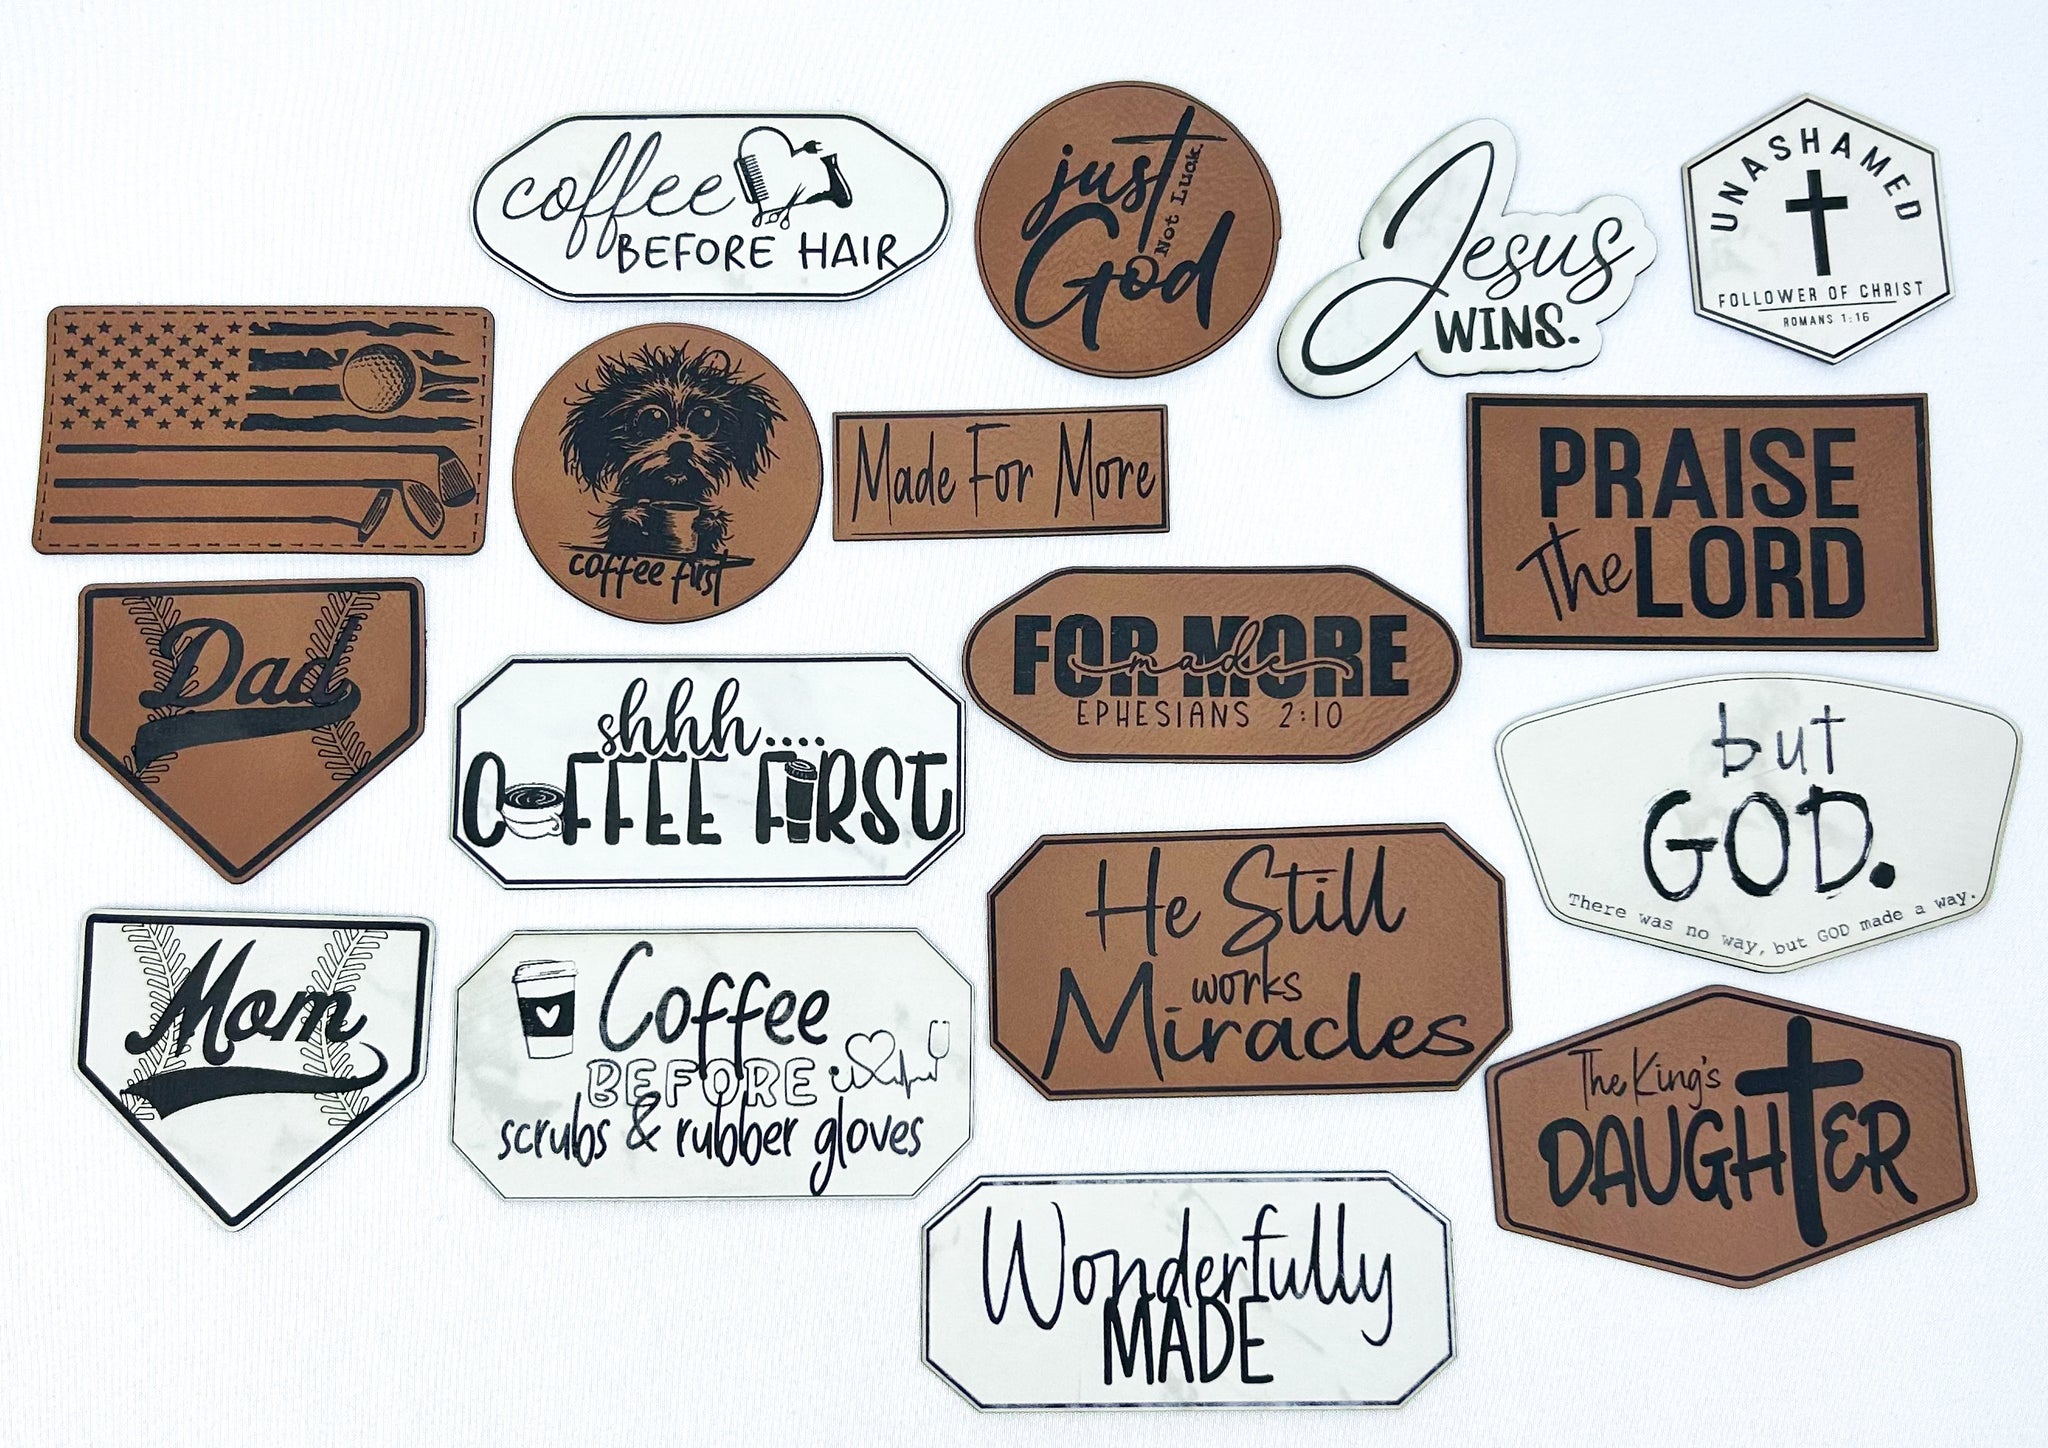 coffee
BEFORE HAIR
just
God
Not Luck.
Jesus
WINS.
UNASHAMED
FOLLOWER OF CHRIST
ROMANS 1:16
coffee first
Made For More
PRAISE
The LORD
Dad
shhh....
COFFEE FIRST
FOR MORE
made
EPHESIANS 2:10
but
GOD.
There was no way, but GOD made a way.
Mom
Coffee
BEFORE
scrubs & rubber gloves
He Still
works
Miracles
The King's
DAUGHTER
Wonderfully
MADE